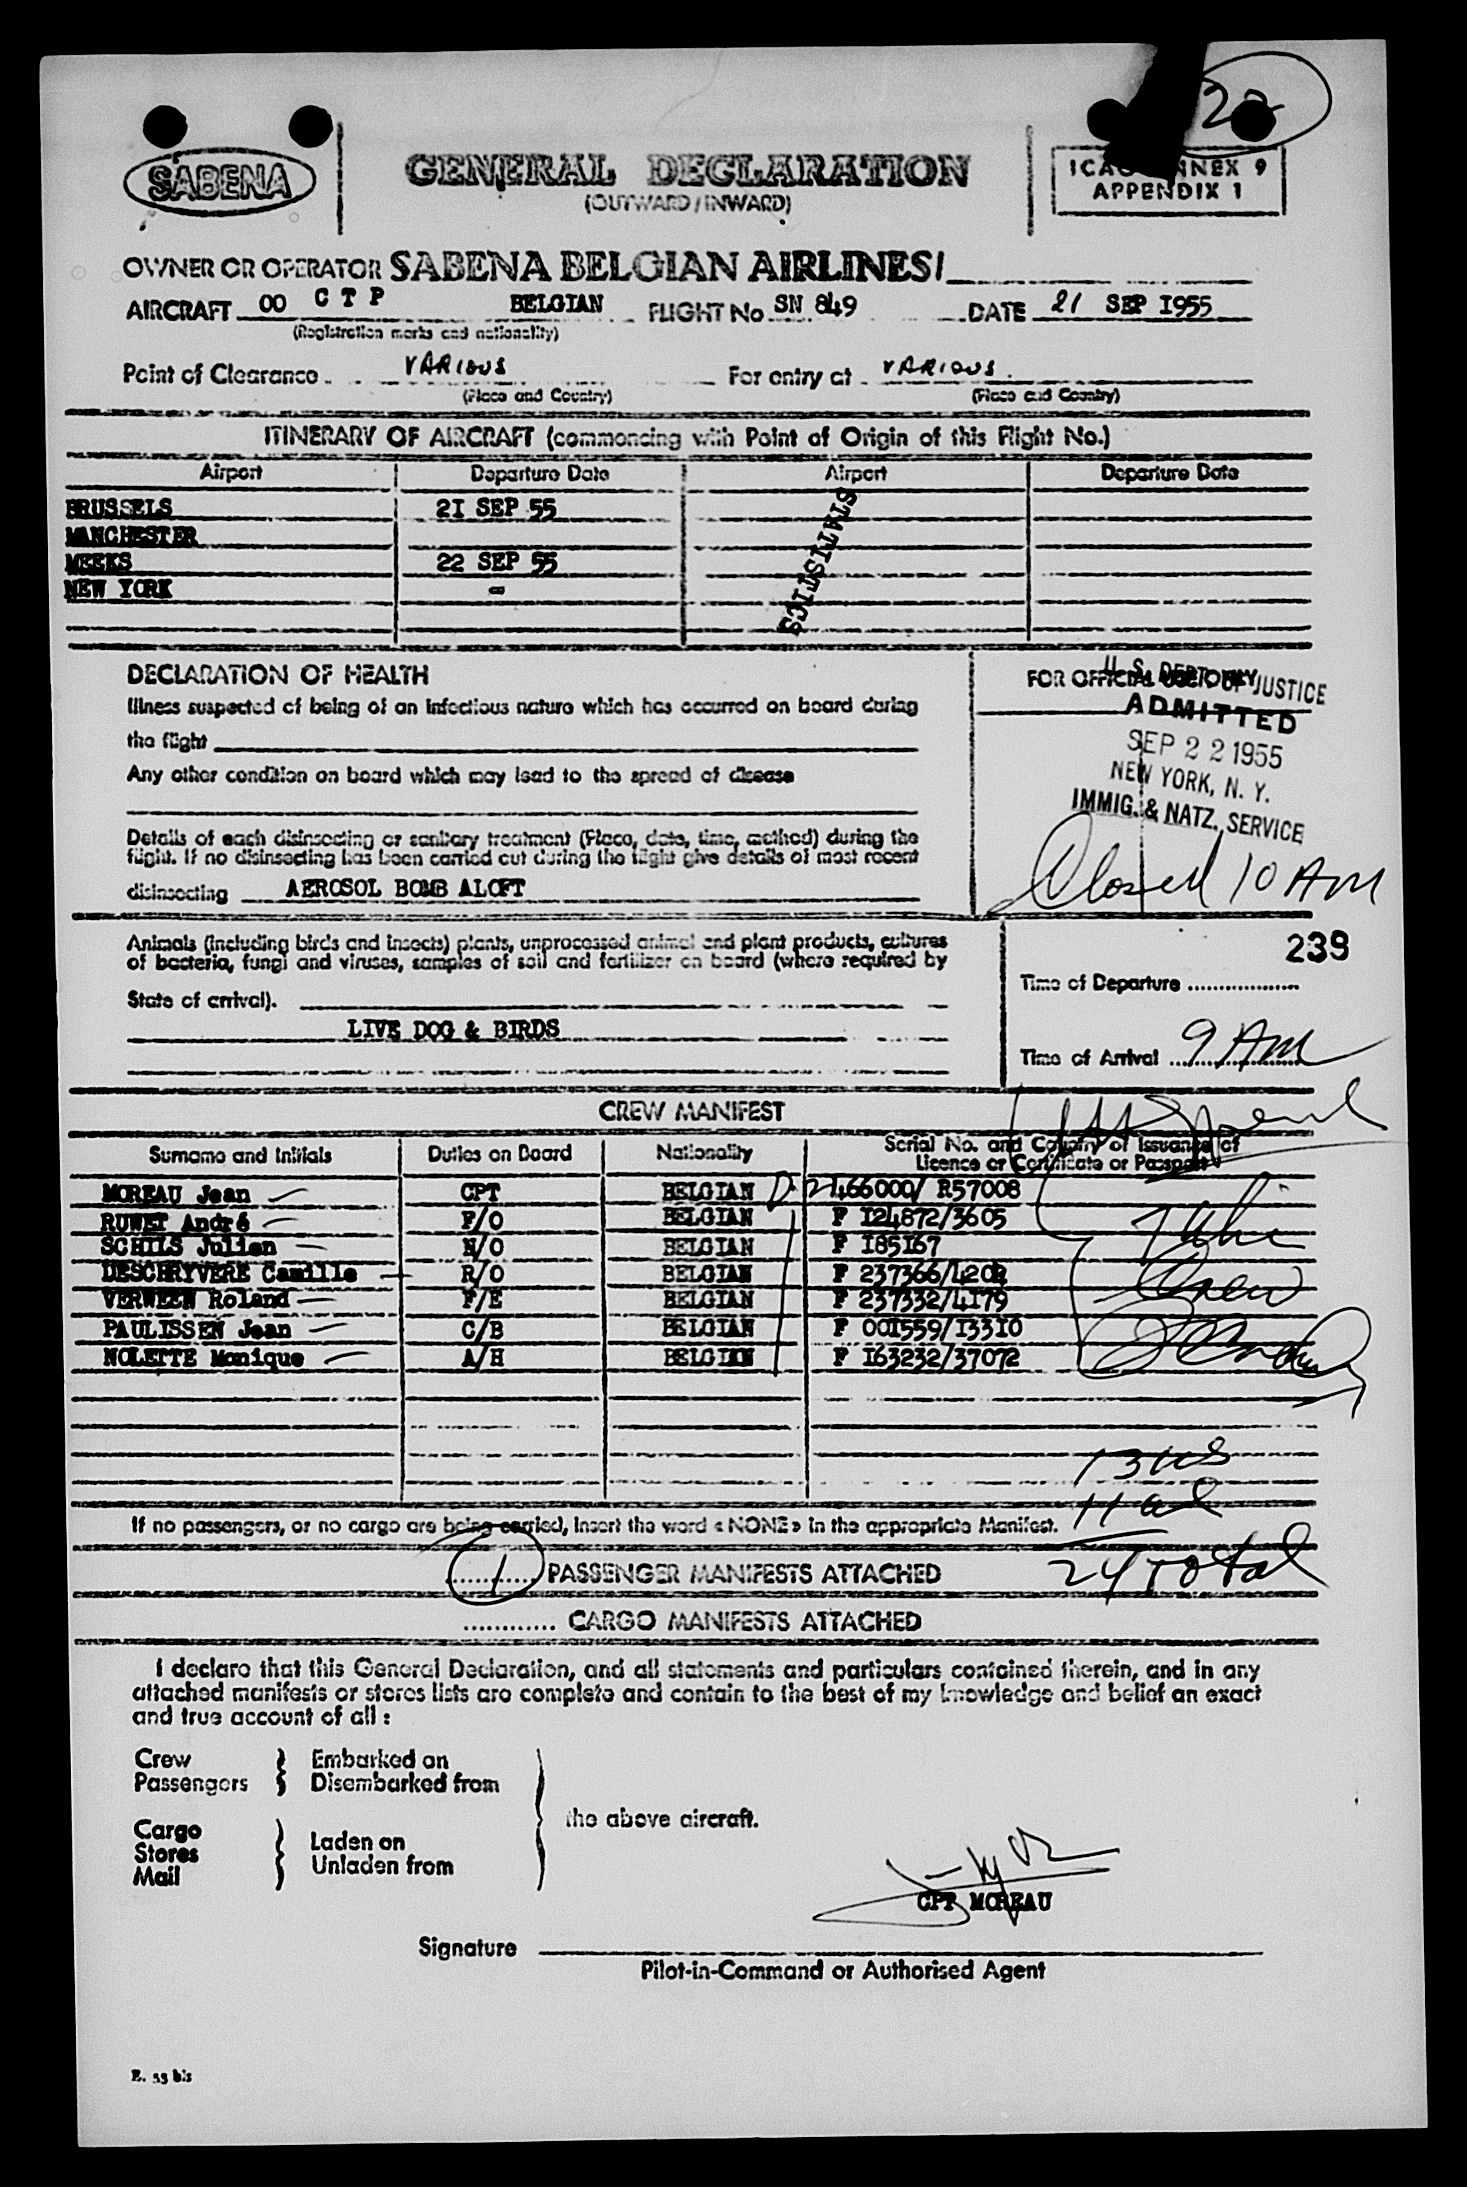 22
SABENA
GENERAL DECLARATION
(OUTWARD / INWARD)
ICAO ANNEX 9
APPENDIX 1
OWNER OR OPERATOR SABENA BELGIAN AIRLINES/
AIRCRAFT OO CTP BELGIAN FLIGHT No SN 849 DATE 21 SEP 1955
(Registration marks and nationality)
Point of Clearance VARIOUS For entry at VARIOUS
(Place and Country) (Place and Country)
ITINERARY OF AIRCRAFT (commencing with Point of Origin of this Flight No.)
Airport Departure Date Airport Departure Date
BRUSSELS 21 SEP 55
MANCHESTER
MEEKS 22 SEP 55
NEW YORK -
STATISTICS
DECLARATION OF HEALTH
Illness suspected of being of an infectious nature which has occurred on board during
the flight
Any other condition on board which may lead to the spread of disease
Details of each disinsecting or sanitary treatment (Place, date, time, method) during the
flight. If no disinsecting has been carried out during the flight give details of most recent
disinsecting AEROSOL BOMB ALOFT
FOR OFFICIAL USE ONLY
U. S. DEPT. OF JUSTICE
ADMITTED
SEP 22 1955
NEW YORK, N. Y.
IMMIG. & NATZ. SERVICE
Closed 10 AM
Animals (including birds and insects) plants, unprocessed animal and plant products, cultures
of bacteria, fungi and viruses, samples of soil and fertilizer on board (where required by
State of arrival).
LIVE DOG & BIRDS
239
Time of Departure
Time of Arrival 9 AM
CREW MANIFEST
Surname and Initials Duties on Board Nationality Serial No. and Country of Issuance of
Licence or Certificate or Passport
MOREAU Jean CPT BELGIAN 2466000/ R57008
RUWET André F/O BELGIAN P I24872/3605
SCHILS Julien N/O BELGIAN P I85I67
DESCHRYVERE Camille R/O BELGIAN P 237366/4202
VERWEEN Roland F/E BELGIAN P 237332/4I79
PAULISSEN Jean C/B BELGIAN P 00I559/I33I0
NOLETTE Monique A/H BELGIAN P I63232/37072
Crew
13 us
11 al
24 total
If no passengers, or no cargo are being carried, insert the word « NONE » in the appropriate Manifest.
1 PASSENGER MANIFESTS ATTACHED
............ CARGO MANIFESTS ATTACHED
I declare that this General Declaration, and all statements and particulars contained therein, and in any
attached manifests or stores lists are complete and contain to the best of my knowledge and belief an exact
and true account of all :
Crew Embarked on
Passengers Disembarked from
the above aircraft.
Cargo
Stores Laden on
Mail Unladen from
CPT MOREAU
Signature
Pilot-in-Command or Authorised Agent
E. 33 bis